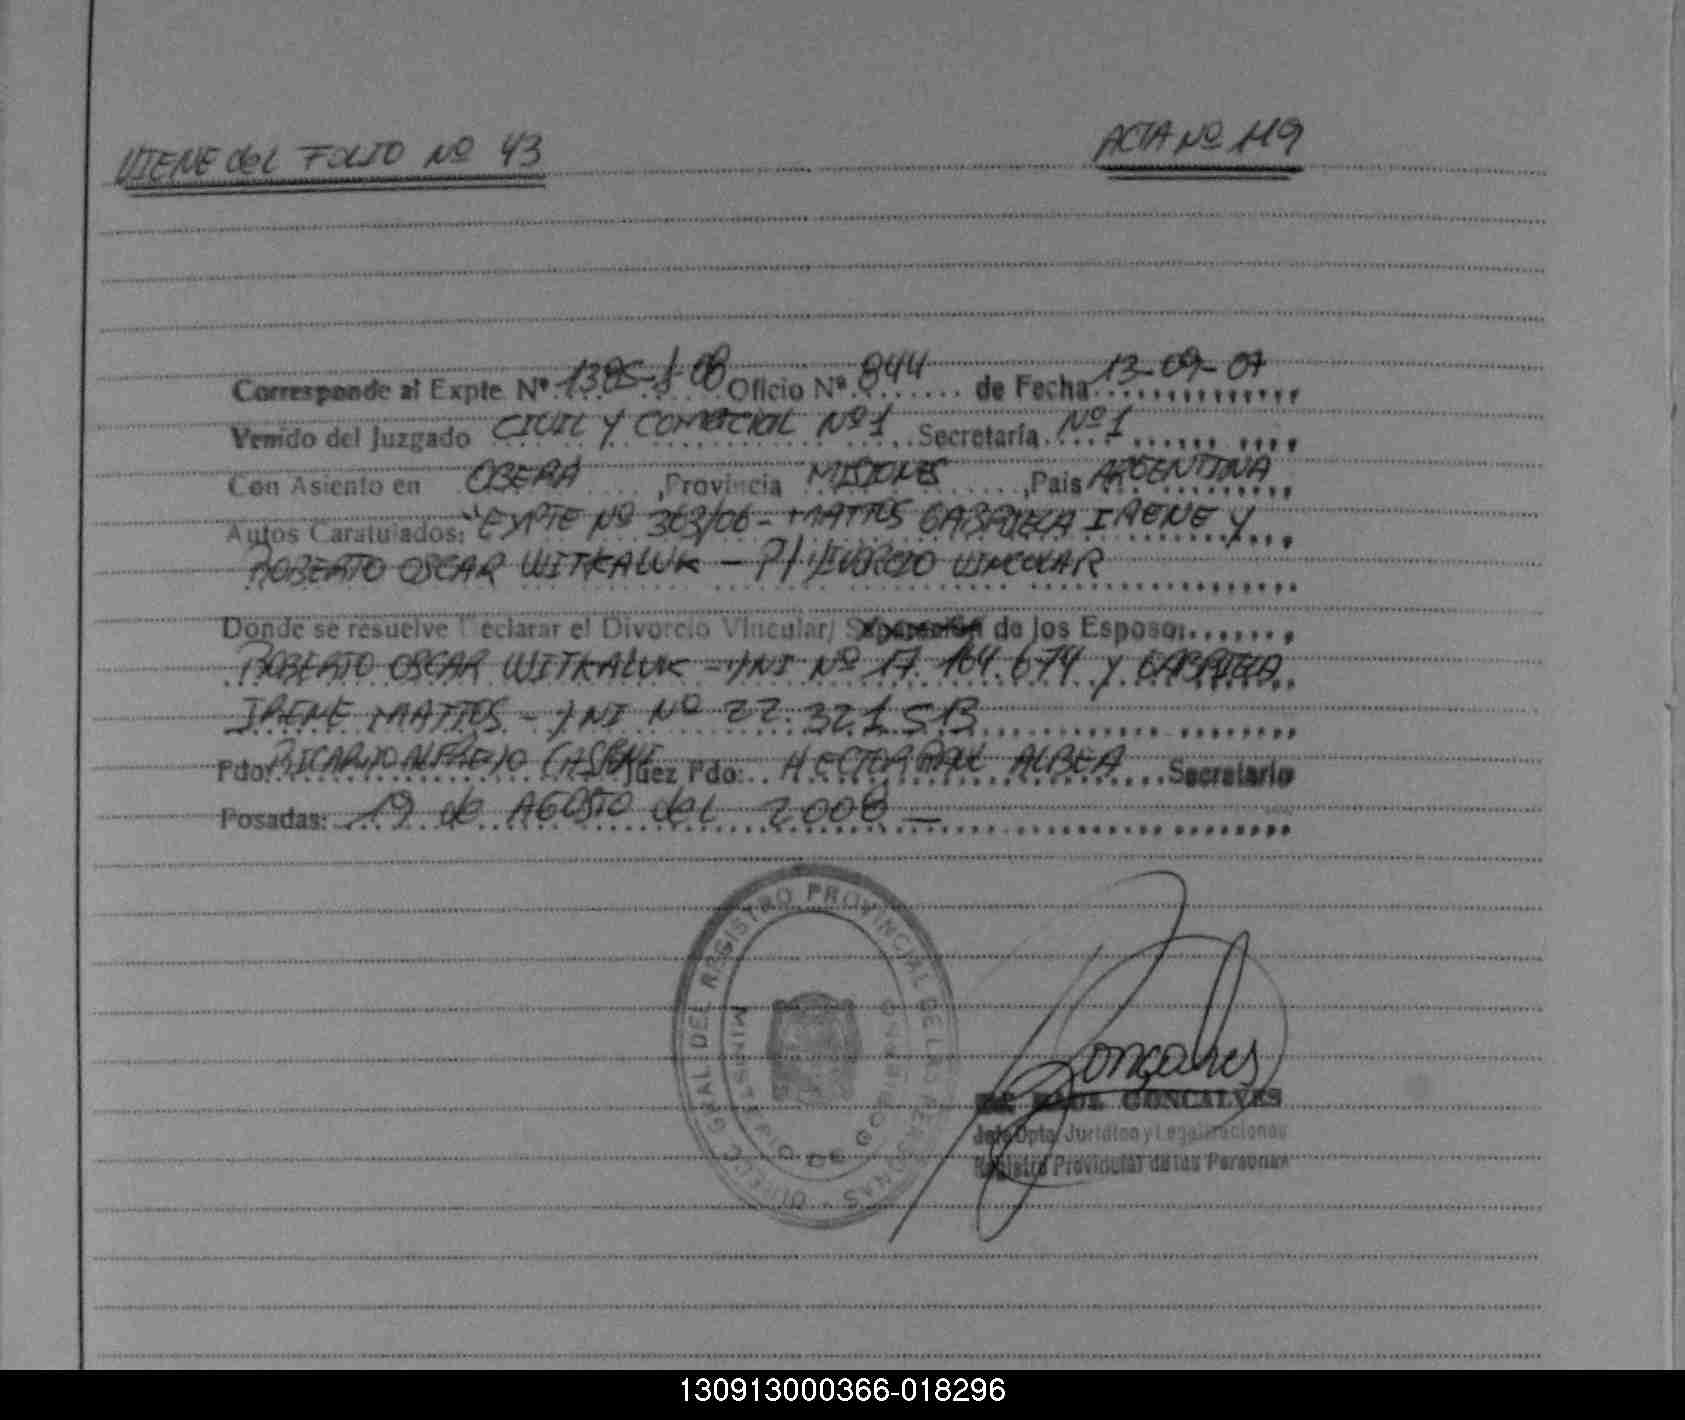 VIENE del FOLIO Nº 43
ACTA Nº 119
Corresponde al Expte Nº 1385-J-08 Oficio Nº 844 de Fecha 13-09-07
Venido del Juzgado CIVIL Y COMERCIAL Nº1 Secretaría Nº1
Con Asiento en OBERA, Provincia MISIONES, Pais ARGENTINA
Autos Caratulados: "EXPTE Nº 363/06 - MATTOS GABRIELA IRENE Y
ROBERTO OSCAR WITKALUK - P/ DIVORCIO VINCULAR
Donde se resuelve Declarar el Divorcio Vincular/ Separación de los Esposos
ROBERTO OSCAR WITKALUK - DNI Nº 17.164.674 Y GABRIELA
IRENE MATTOS - DNI Nº 22.321.513
Pdo: RICARDO ALFREDO Juez Pdo: HECTOR RAUL ALBEA Secretario
Posadas: 19 de AGOSTO del 2008 —
DIRECC GRAL DEL REGISTRO PROVINCIAL DE LAS PERSONAS
MINISTERIO DE GOBIERNO
Goncalves
RAUL GONCALVES
Jefe Dpto. Jurídico y Legalizaciones
Registro Provincial de las Personas
130913000366-018296